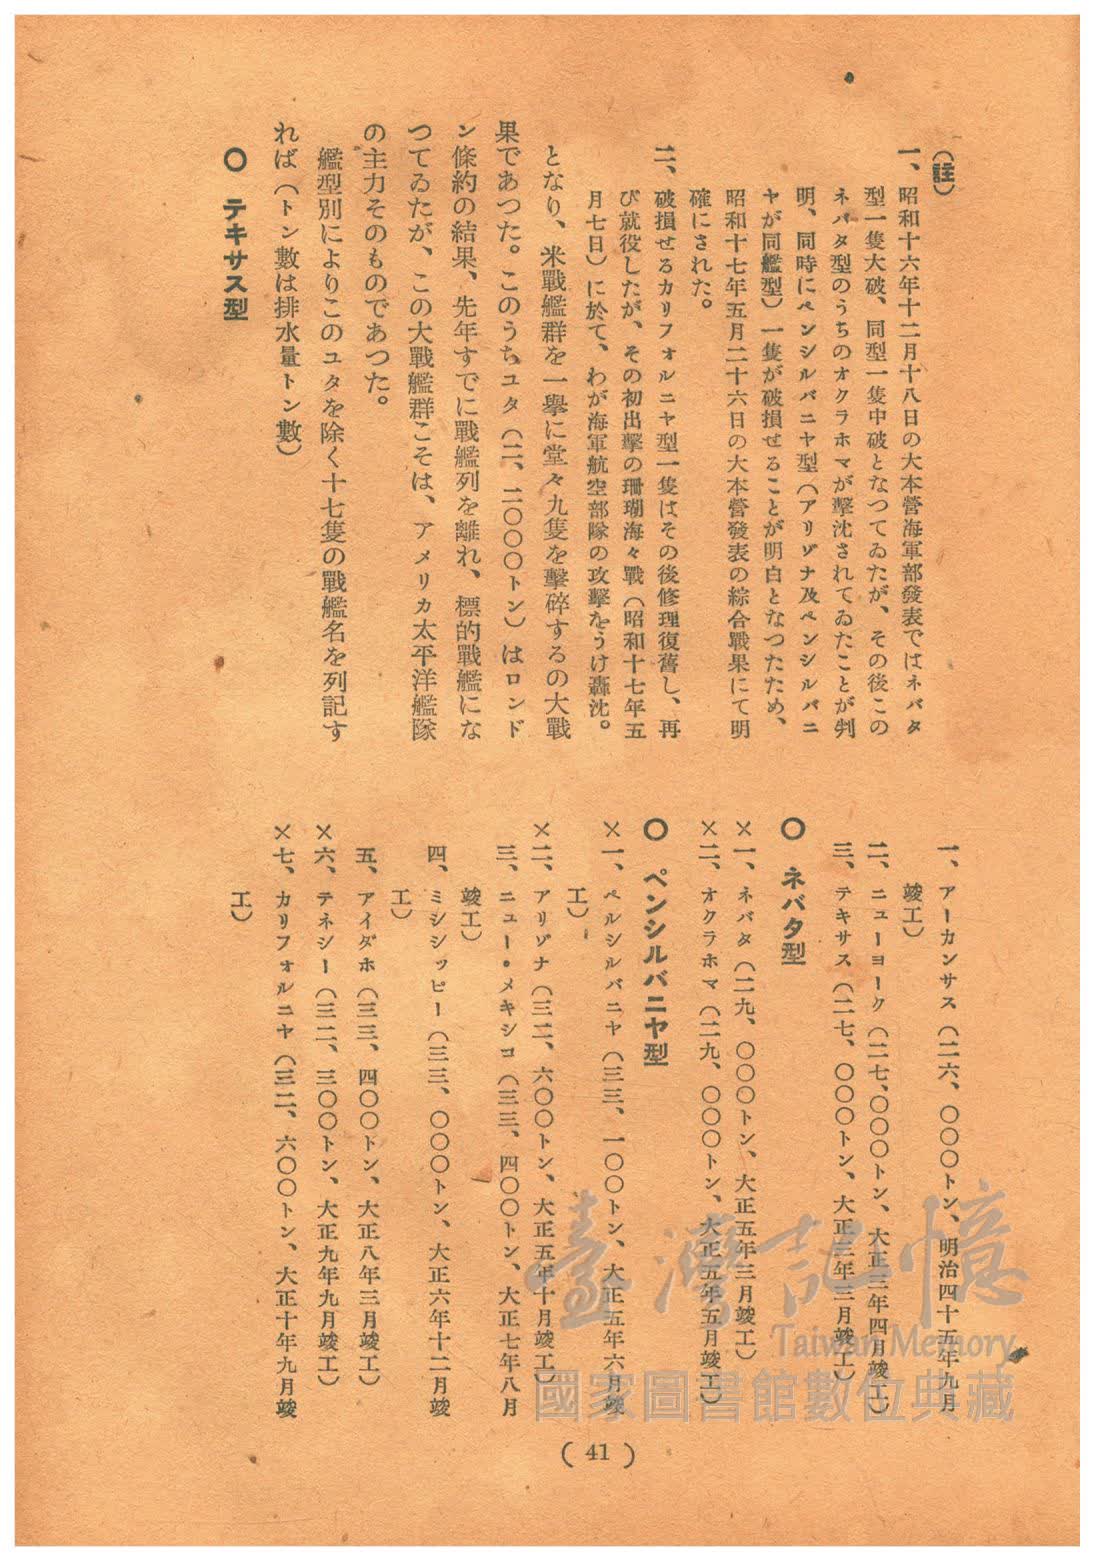 (註)
一、昭和十六年十二月十八日の大本營海軍部發表ではネバタ
型一隻大破、同型一隻中破となつてゐたが、その後この
ネバタ型のうちのオクラホマが擊沈されてゐたことが判
明、同時にペンシルバニヤ型(アリゾナ及ペンシルバニ
ヤが同艦型)一隻が破損せることが明白となつたため、
昭和十七年五月二十六日の大本營發表の綜合戰果にて明
確にされた。
二、破損せるカリフォルニヤ型一隻はその後修理復舊し、再
び就役したが、その初出擊の珊瑚海々戰(昭和十七年五
月七日)に於て、わが海軍航空部隊の攻擊をうけ轟沈。
となり、米戰艦群を一擧に堂々九隻を擊碎するの大戰
果であつた。このうちユタ(二、二〇〇〇トン)はロンド
ン條約の結果、先年すでに戰艦列を離れ、標的戰艦にな
つてゐたが、この大戰艦群こそは、アメリカ太平洋艦隊
の主力そのものであつた。
艦型別によりこのユタを除く十七隻の戰艦名を列記す
れば(トン數は排水量トン數)
〇 テキサス型
一、アーカンサス(二六、〇〇〇トン、明治四十五年九月
竣工)
二、ニューヨーク(二七、〇〇〇トン、大正三年四月竣工)
三、テキサス(二七、〇〇〇トン、大正三年三月竣工)
〇 ネバタ型
×一、ネバタ(二九、〇〇〇トン、大正五年三月竣工)
×二、オクラホマ(二九、〇〇〇トン、大正五年五月竣工)
〇 ペンシルバニヤ型
×一、ペルシルバニヤ(三三、一〇〇トン、大正五年六月竣
工)
×二、アリゾナ(三二、六〇〇トン、大正五年十月竣工)
三、ニュー・メキシコ(三三、四〇〇トン、大正七年八月
竣工)
四、ミシシッピー(三三、〇〇〇トン、大正六年十二月竣
工)
五、アイダホ(三三、四〇〇トン、大正八年三月竣工)
×六、テネシー(三二、三〇〇トン、大正九年九月竣工)
×七、カリフォルニヤ(三二、六〇〇トン、大正十年九月竣
工)
( 41 )
臺灣記憶
Taiwan Memory
國家圖書館數位典藏